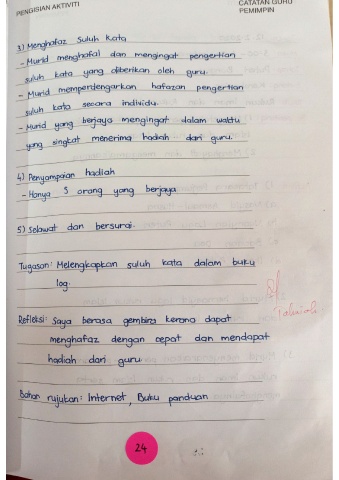 PENGISIAN AKTIVITI
CATATAN GURU
PEMIMPIN
3) Menghafaz Suluh Kata
- Murid menghafal dan mengingat pengertian
suluh kata yang diberikan oleh guru.
- Murid memperdengarkan hafazan pengertian
suluh kata secara individu.
- Murid yang berjaya mengingat dalam waktu
yang singkat menerima hadiah dari guru.
4) Penyampaian hadiah
- Hanya 5 orang yang berjaya
5) Solawat dan bersurai.
Tugasan: Melengkapkan suluh kata dalam buku
log.
Refleksi: Saya berasa gembira kerana dapat
menghafaz dengan cepat dan mendapat
hadiah dari guru
Bahan rujukan: Internet, Buku panduan
24